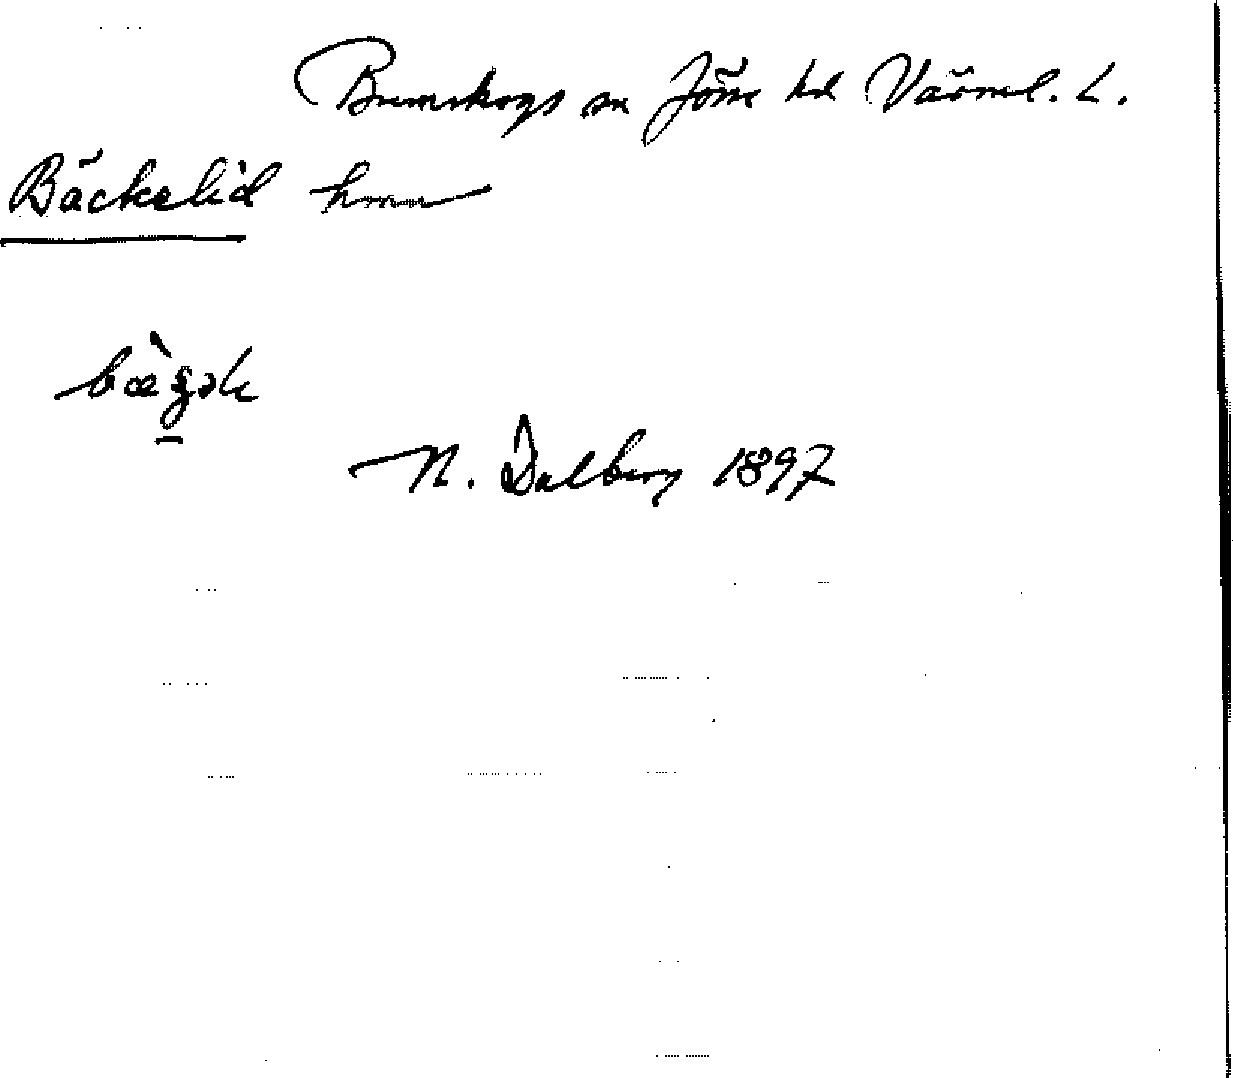 Brunskogs sn Jösse hd Värml. L.
Bäckelid hmn
N. Dalberg 1897